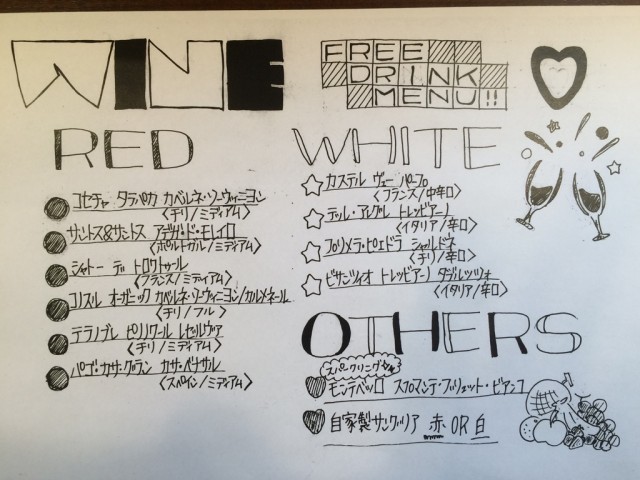 WINE
FREE
DRINK
MENU!!
RED
コセチャ タラパカ カベルネ・ソーヴィニヨン
〈チリ/ミディアム〉
サントス&サントス アデガ・ド・モレイロ
〈ポルトガル/ミディアム〉
シャトー デ トロワトゥール
〈フランス/ミディアム〉
コリスル オーガニック カベルネ・ソーヴィニヨン/カルメネール
〈チリ/フル〉
テラノブレ ピノノワール レセルヴァ
〈チリ/ミディアム〉
パゴ・カサ・グラン カサ・ベナサル
〈スペイン/ミディアム〉
WHITE
カステル ヴュー パープ
〈フランス/中辛口〉
テッレ・アレグレ トレッビアーノ
〈イタリア/辛口〉
プリメラ・ピエドラ シャルドネ
〈チリ/辛口〉
ビサンツィオ トレッビアーノ ダブルッツォ
〈イタリア/辛口〉
OTHERS
スパークリング
モンテベッロ スプマンテ・ブリュット・ビアンコ
自家製サングリア 赤 OR 白